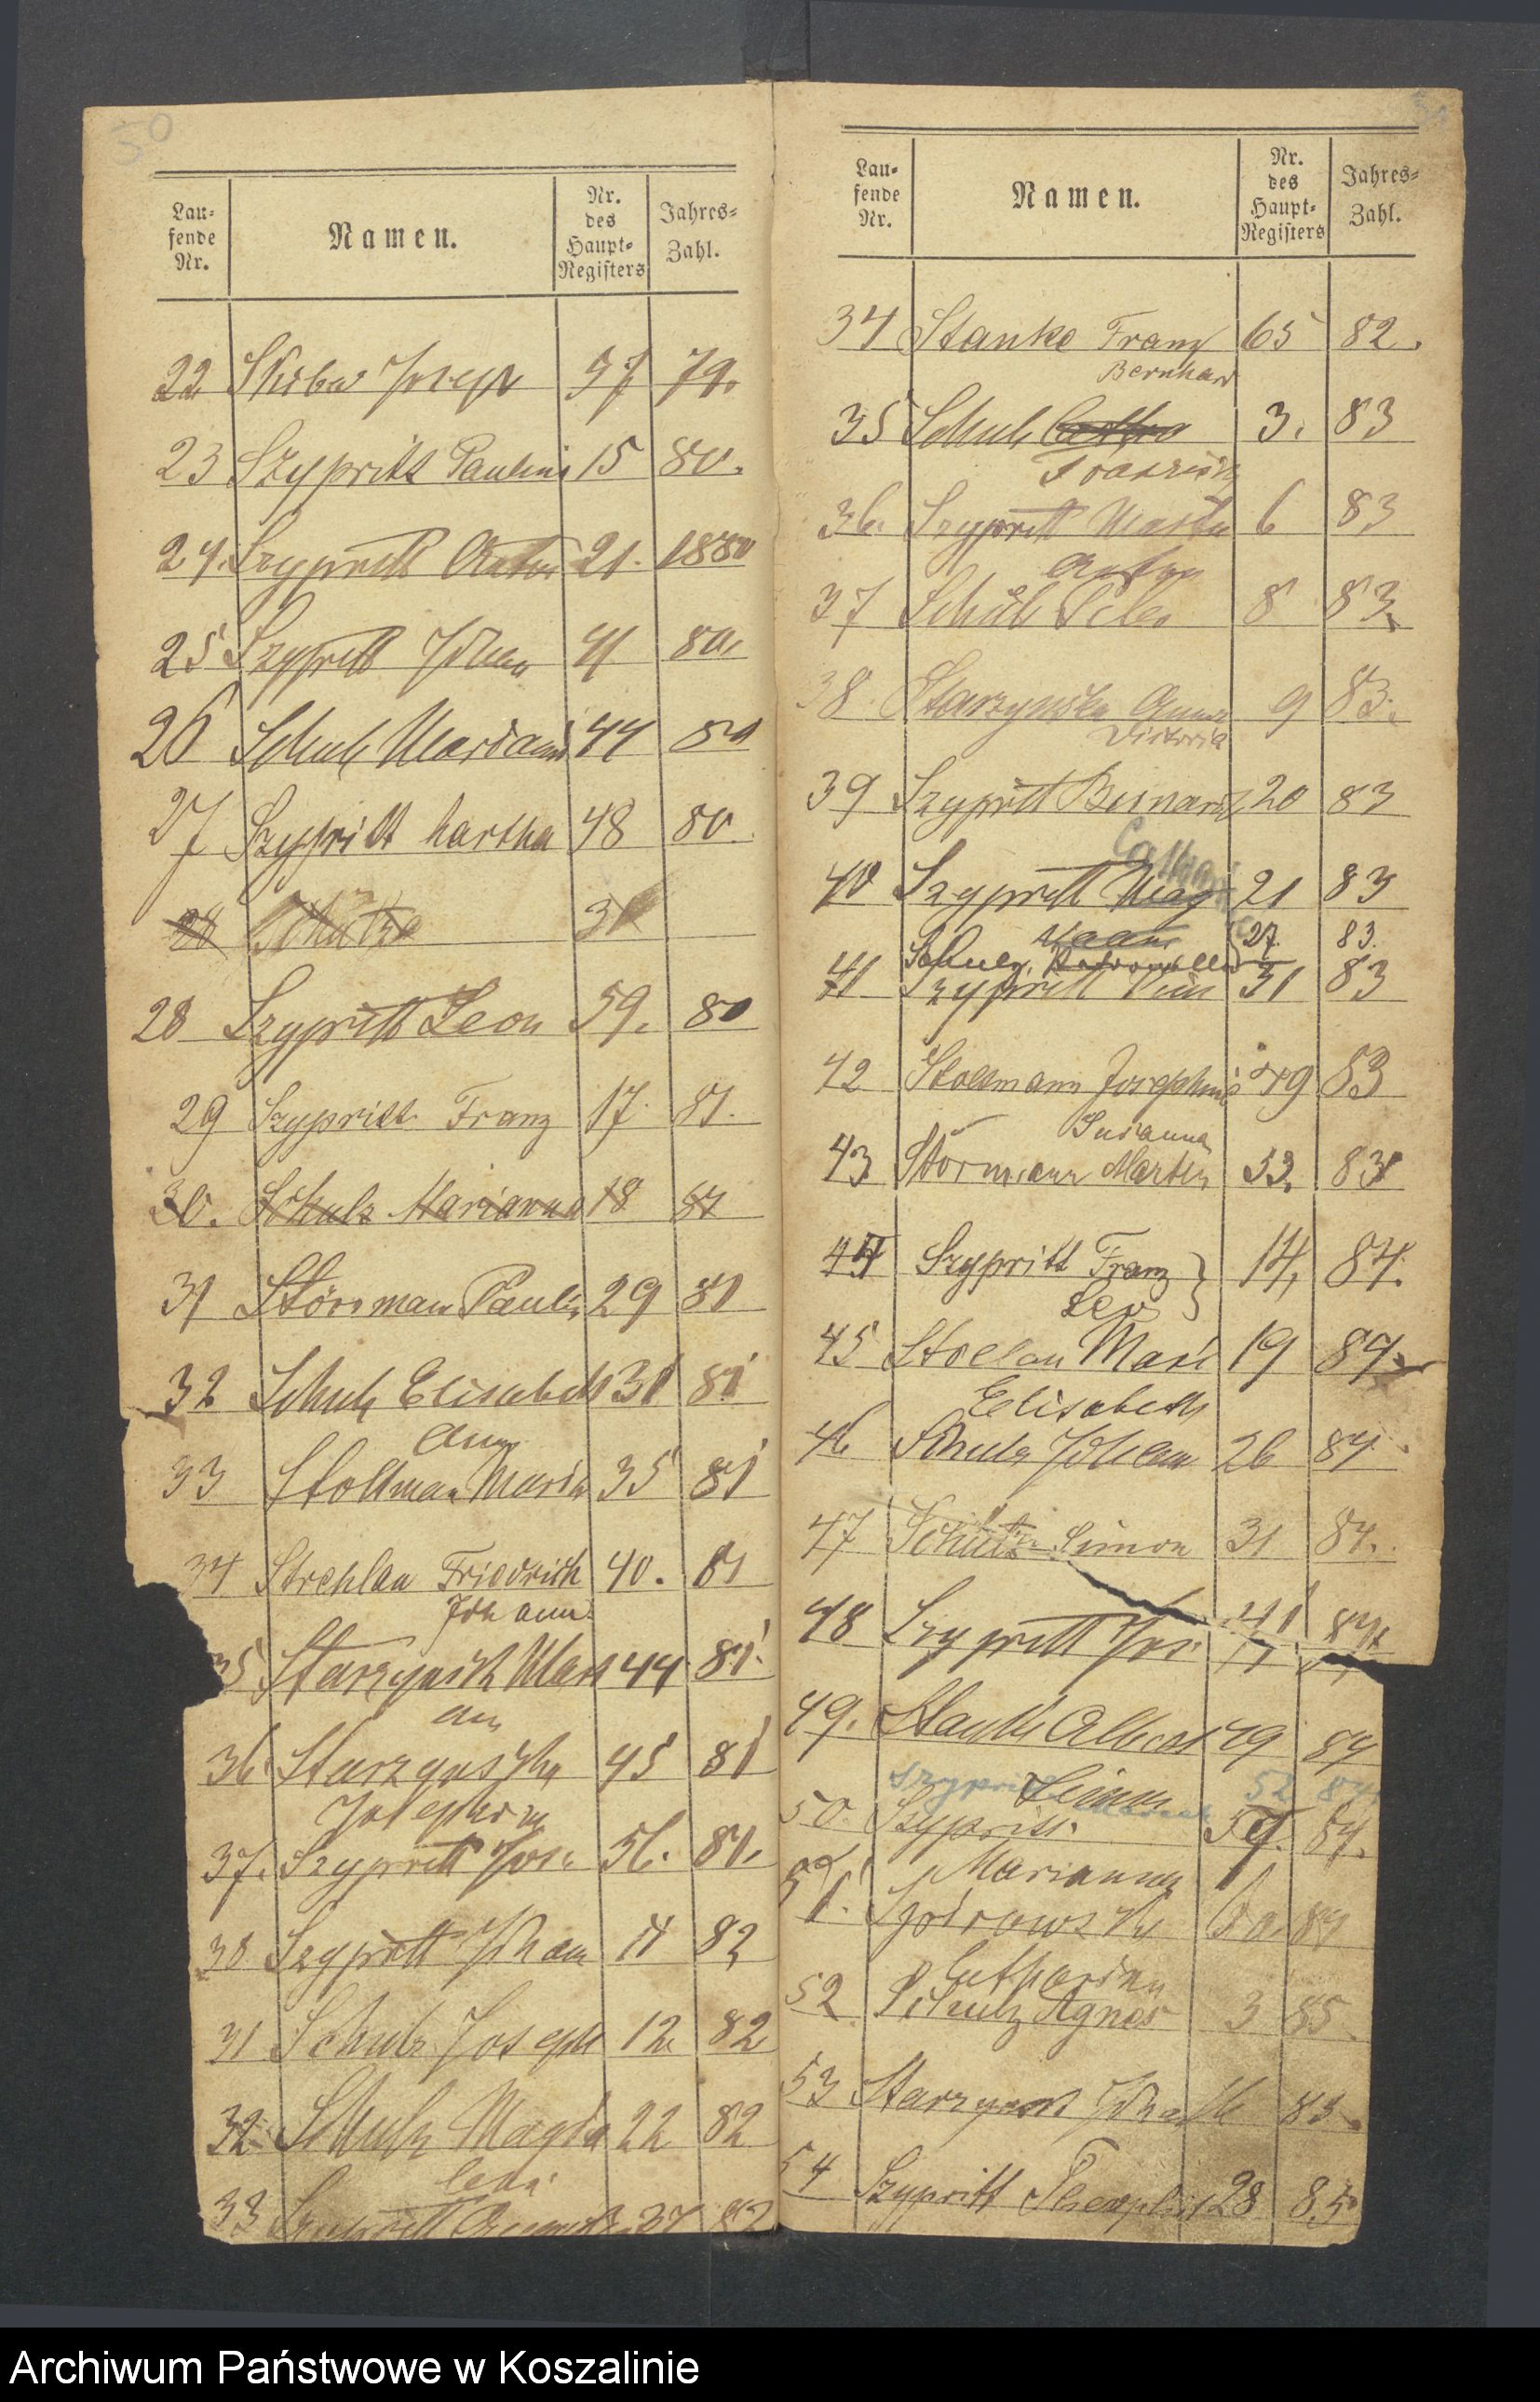 50
Lau-
fende
Nr.
Namen.
Nr.
des
Haupt-
Registers
Jahres-
Zahl.
22 Skiba Joseph 57 79.
23 Szypritt Paulina 15 80.
24. Szypritt Anton 21. 1880
25 Szypritt Johan 41 80.
26 Schulz Mariann 44 80
27 Szypritt Martha 48 80.
28 Schütze 31
28 Szypritt Leon 59. 80
29 Szypritt Franz 17. 81.
30. Schulz Marianna 18 81
31 Störrman Paulin 29 81
32 Schulz Elisabeth 31 81
Ann
33 Stoltman Maria 35 81
34 Strehlau Friedrich 40. 81
Johann
35 Starzynsk Mari 44 81.
an
36 Starzynska 45 81
Josephine
37. Szypritt Jos. 56. 81.
38 Szypritt Johan 11 82
31 Schulz Joseph 12. 82
32 Schulz Magda 22 82
lena
33 Szypritt 37 82
Lau-
fende
Nr.
Namen.
Nr.
des
Haupt-
Registers
Jahres-
Zahl.
34 Stanke Franz 65 82.
Bernhard
35 Schulz 3. 83
36. Szypritt Martin 6 83
Anton
37 Schulz 8 83.
38. Starzynska Anna 9 83.
Victoria
39 Szypritt Bernard 20 83
Cathari
40 Szypritt Mag 21 83
Schulz, Petronella 27. 83.
41 Szypritt Pius 31 83
42 Stollmann Josephine 49 83
Susanna
43 Störmann Martin 53. 83
44 Szypritt Franz } 14, 84.
Leo
45 Strelau Mari 19 84.
Elisabeth
46 Schulz Johan 26 84.
47 Schütz Simon 31 84.
48 Szypritt Jos. 41 84.
49. Stanke Albert 49 84
Szypritt 52 84
50. Szypritt 84.
Marianna
51. 84
Catharina
52 Schulz Agnes 3 85.
53 Starzynsk Joha 16 85.
54 Szypritt Theophil 28 85
Archiwum Państwowe w Koszalinie